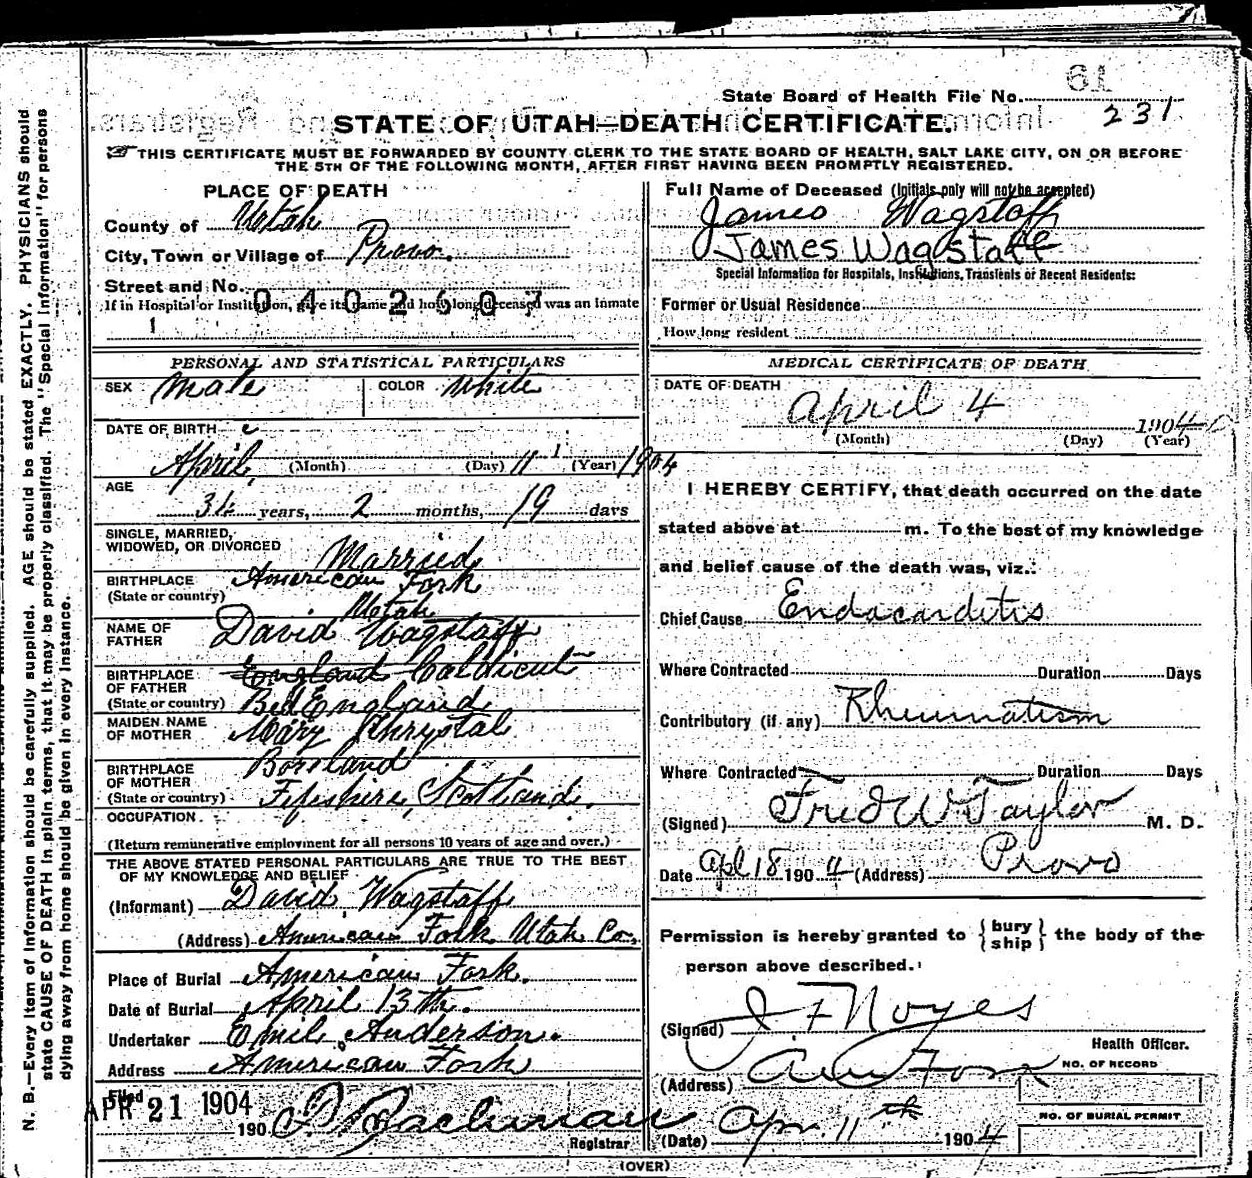 61
State Board of Health File No. 231
STATE OF UTAH—DEATH CERTIFICATE.
THIS CERTIFICATE MUST BE FORWARDED BY COUNTY CLERK TO THE STATE BOARD OF HEALTH, SALT LAKE CITY, ON OR BEFORE
THE 5TH OF THE FOLLOWING MONTH, AFTER FIRST HAVING BEEN PROMPTLY REGISTERED.
PLACE OF DEATH
County of Utah
City, Town or Village of Provo.
Street and No.
If in Hospital or Institution, give its name and how long deceased was an inmate
0402607
1
PERSONAL AND STATISTICAL PARTICULARS
SEX Male COLOR White
DATE OF BIRTH
April, (Month) (Day) 11 (Year) 1904
AGE
34 years, 2 months, 19 days
SINGLE, MARRIED,
WIDOWED, OR DIVORCED Married
BIRTHPLACE American Fork
(State or country) Utah
NAME OF
FATHER David Wagstaff
BIRTHPLACE England Caldicut
OF FATHER
(State or country) Bed England
MAIDEN NAME
OF MOTHER Mary Khrystal
BIRTHPLACE
OF MOTHER
(State or country) Fifeshire, Scotland.
OCCUPATION
(Return remunerative employment for all persons 10 years of age and over.)
THE ABOVE STATED PERSONAL PARTICULARS ARE TRUE TO THE BEST
OF MY KNOWLEDGE AND BELIEF
(Informant) David Wagstaff
(Address) American Fork Utah Co.
Place of Burial American Fork.
Date of Burial April 13th.
Undertaker Emil Anderson.
Address American Fork
Filed
APR 21 1904
190
Registrar
Full Name of Deceased (Initials only will not be accepted)
James Wagstaff
James Wagstaff
Special Information for Hospitals, Institutions, Transients or Recent Residents:
Former or Usual Residence
How long resident
MEDICAL CERTIFICATE OF DEATH
DATE OF DEATH
April 4 1904
(Month) (Day) (Year)
I HEREBY CERTIFY, that death occurred on the date
stated above at m. To the best of my knowledge
and belief cause of the death was, viz.:
Chief Cause Endacarditis
Where Contracted Duration Days
Contributory (if any) Rheumatism
Where Contracted Duration Days
(Signed) Fred W Taylor M. D.
Date Apl 18 1904 (Address) Provo
Permission is hereby granted to { bury
ship } the body of the
person above described.
(Signed) J F Noyes
Health Officer.
(Address) Am Fork
NO. OF RECORD
NO. OF BURIAL PERMIT
(Date) Apr. 11th 1904
(OVER)
N. B.—Every item of information should be carefully supplied. AGE should be stated EXACTLY. PHYSICIANS should
state CAUSE OF DEATH in plain terms, that it may be properly classified. The "Special Information" for persons
dying away from home should be given in every instance.